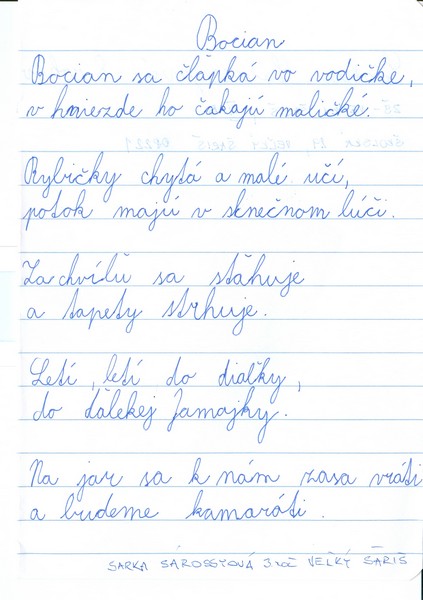 Bocian
Bocian sa člapká vo vodičke,
v hniezde ho čakajú maličké.
Rybičky chytá a malé učí,
potok majú v slnečnom lúči.
Za chvílu sa stahuje
a tapety strhuje.
Letí, letí do dialky,
do dalekej Jamajky.
Na jar sa k nám zasa vráti
a budeme kamaráti.
SARKA SÁROSSYOVÁ 3 roč VEĽKÝ ŠARIŠ